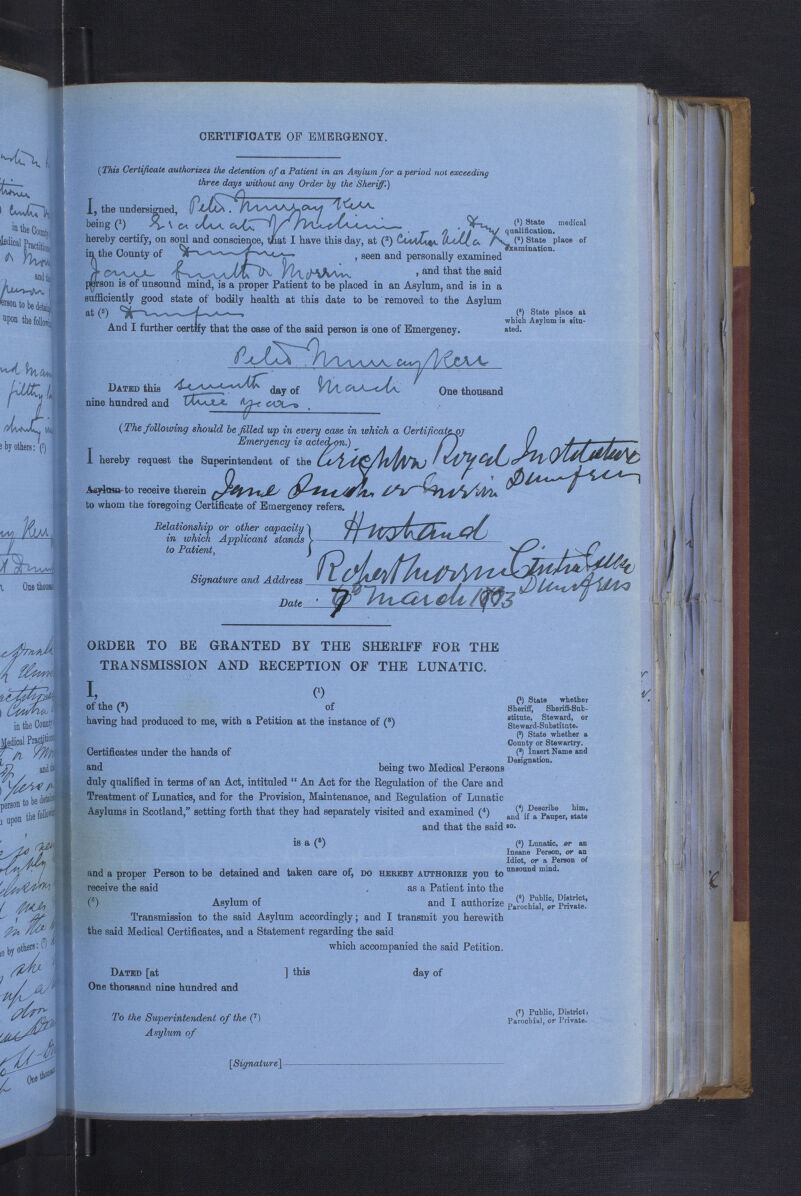 CERTIFICATE OF EMERGENCY.
(This Certificate authorizes the detention of a Patient in an Asylum for a period not exceeding
three days without any Order by the Sheriff.)
I, the undersigned, Peter Murray Kerr
being (¹) Graduate of Medicine
(¹) State medical
qualification.
hereby certify, on soul and conscience, that I have this day, at (²) Cintra Villa
(²) State place of
examination.
in the County of Dumfries , seen and personally examined
Jane Smith or Morrin , and that the said
person is of unsound mind, is a proper Patient to be placed in an Asylum, and is in a
sufficiently good state of bodily health at this date to be removed to the Asylum
at (³) Dumfries
(³) State place at
which Asylum is situ-
ated.
And I further certify that the case of the said person is one of Emergency.
Peter Murray Kerr
DATED this seventh day of March One thousand
nine hundred and three years.
(The following should be filled up in every case in which a Certificate of
Emergency is acted on.)
I hereby request the Superintendent of the Crichton Royal Institution
Asylum to receive therein Jane Smith or Morrin Dumfries
to whom the foregoing Certificate of Emergency refers.
Relationship or other capacity
in which Applicant stands
to Patient,
Husband
Signature and Address Robert Morrin Cintra Villa
Dumfries
Date 7 March 1903
ORDER TO BE GRANTED BY THE SHERIFF FOR THE
TRANSMISSION AND RECEPTION OF THE LUNATIC.
I, (¹)
of the (²) of
(¹) State whether
Sheriff, Sheriff-Sub-
stitute, Steward, or
Steward-Substitute.
having had produced to me, with a Petition at the instance of (³)
(²) State whether a
County or Stewartry.
Certificates under the hands of
(³) Insert Name and
Designation.
and being two Medical Persons
duly qualified in terms of an Act, intituled "An Act for the Regulation of the Care and
Treatment of Lunatics, and for the Provision, Maintenance, and Regulation of Lunatic
Asylums in Scotland," setting forth that they had separately visited and examined (⁴)
(⁴) Describe him,
and if a Pauper, state
so.
and that the said
is a (⁵)
(⁵) Lunatic, or an
Insane Person, or an
Idiot, or a Person of
unsound mind.
and a proper Person to be detained and taken care of, DO HEREBY AUTHORIZE you to
receive the said as a Patient into the
(⁶) Asylum of and I authorize
(⁶) Public, District,
Parochial, or Private.
Transmission to the said Asylum accordingly; and I transmit you herewith
the said Medical Certificates, and a Statement regarding the said
which accompanied the said Petition.
DATED [at ] this day of
One thousand nine hundred and
To the Superintendent of the (⁷)
Asylum of
(⁷) Public, District,
Parochial, or Private.
[Signature]